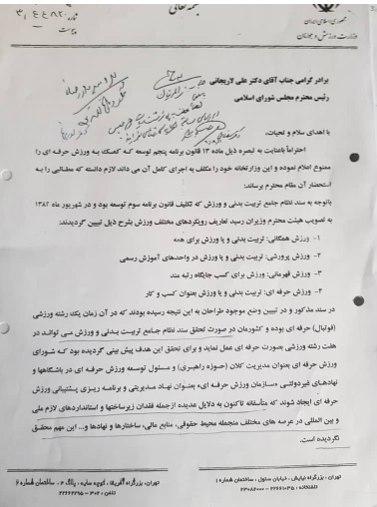 بسمه تعالی
جمهوری اسلامی ایران
وزارت ورزش و جوانان
شماره
پیوست
برادر گرامی جناب آقای دکتر علی لاریجانی
رئیس محترم مجلس شورای اسلامی
با اهدای سلام و تحیات،
احتراماً باعنایت به تبصره ذیل ماده ۱۳ قانون برنامه پنجم توسعه که کمک به ورزش حرفه ای را
ممنوع اعلام نموده و این وزارتخانه خود را مکلف به اجرای کامل آن می داند لازم دانسته مطالبی را به
استحضار آن مقام محترم برساند:
باتوجه به سند نظام جامع تربیت بدنی و ورزش که تکلیف قانون برنامه سوم توسعه بود و در شهریور ماه ۱۳۸۲
به تصویب هیئت محترم وزیران رسید تعاریف رویکردهای مختلف ورزش بشرح ذیل تبیین گردیدند:
۱- ورزش همگانی: تربیت بدنی و یا ورزش برای همه
۲- ورزش پرورشی: تربیت بدنی و یا ورزش در واحدهای آموزش رسمی
۳- ورزش قهرمانی: ورزش برای کسب جایگاه رتبه مند
۴- ورزش حرفه ای: تربیت بدنی و یا ورزش بعنوان کسب و کار
در سند مذکور و در تبیین وضع موجود طراحان به این نتیجه رسیده بودند که در آن زمان یک رشته ورزشی
(فوتبال) حرفه ای بوده و کشورمان در صورت تحقق سند نظام جامع تربیت بدنی و ورزش می توانند در
هفت رشته ورزشی بصورت حرفه ای عمل نماید و برای تحقق این هدف پیش بینی گردیده بود که شورای
ورزش حرفه ای بعنوان مدیریت کلان (حوزه راهبری) و مسئول توسعه ورزش حرفه ای در باشگاهها و
نهادهای غیردولتی «سازمان ورزش حرفه ای» بعنوان نهاد مدیریتی و برنامه ریزی پشتیبانی ورزش
حرفه ای ایجاد شوند که متأسفانه تاکنون به دلایل عدیده ازجمله فقدان زیرساختها و استانداردهای لازم ملی
و بین المللی در عرصه های مختلف منجمله محیط حقوقی، منابع مالی، ساختارها و نهادها و... این مهم محقق
نگردیده است.
تهران، بزرگراه نیایش، خیابان سئول، ساختمان شماره ۱
تهران، بزرگراه آفریقا، کوچه سایه، پلاک ۴، ساختمان شماره ۲